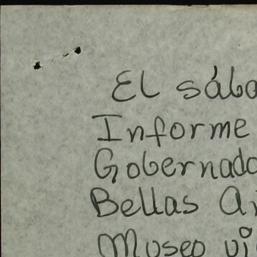 El sába
Informe
Gobernado
Bellas Ar
Museo vi